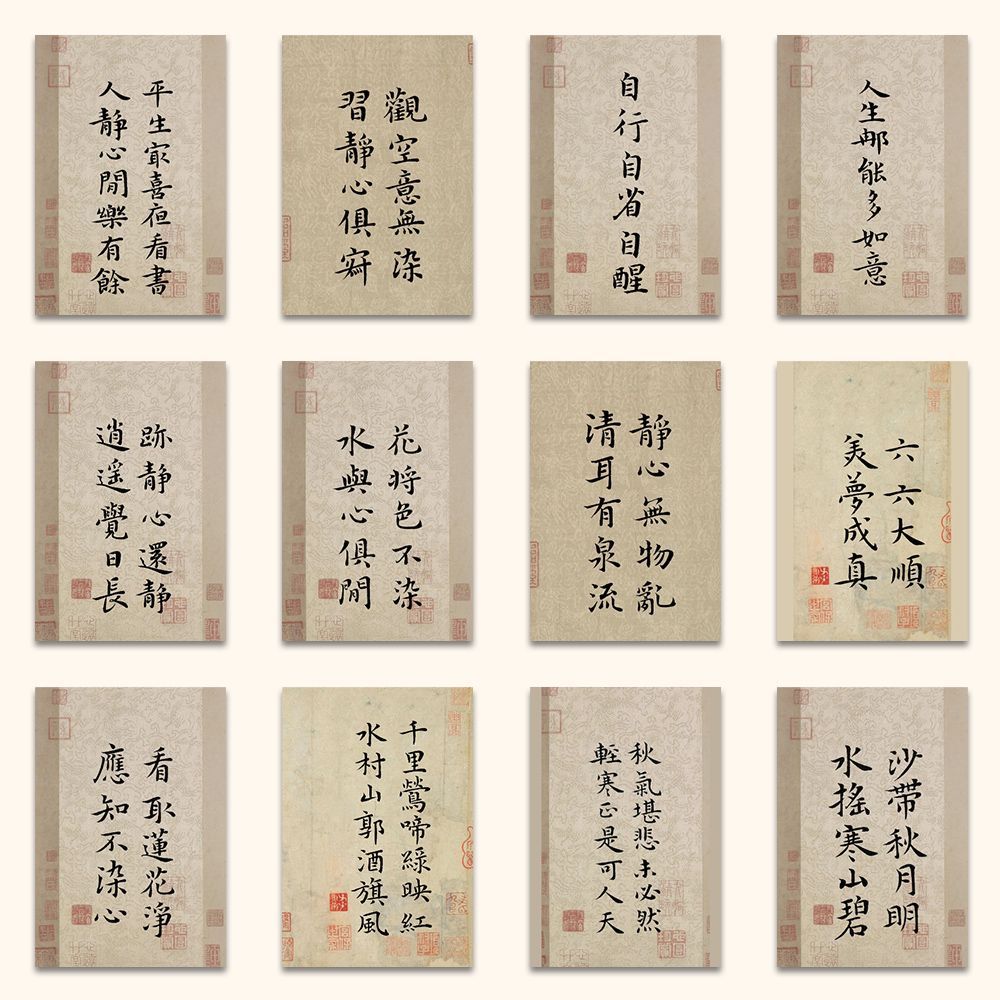 平生宷喜夜看書
人靜心閒樂有餘
觀空意無染
習靜心俱寂
自行自省自醒
人生那能多如意
跡靜心還靜
逍遥覺日長
花將色不染
水與心俱閒
靜心無物亂
清耳有泉流
六六大順
美夢成真
看取蓮花淨
應知不染心
千里鶯啼綠映紅
水村山郭酒旗風
秋氣堪悲未必然
輕寒正是可人天
沙帶秋月明
水搖寒山碧